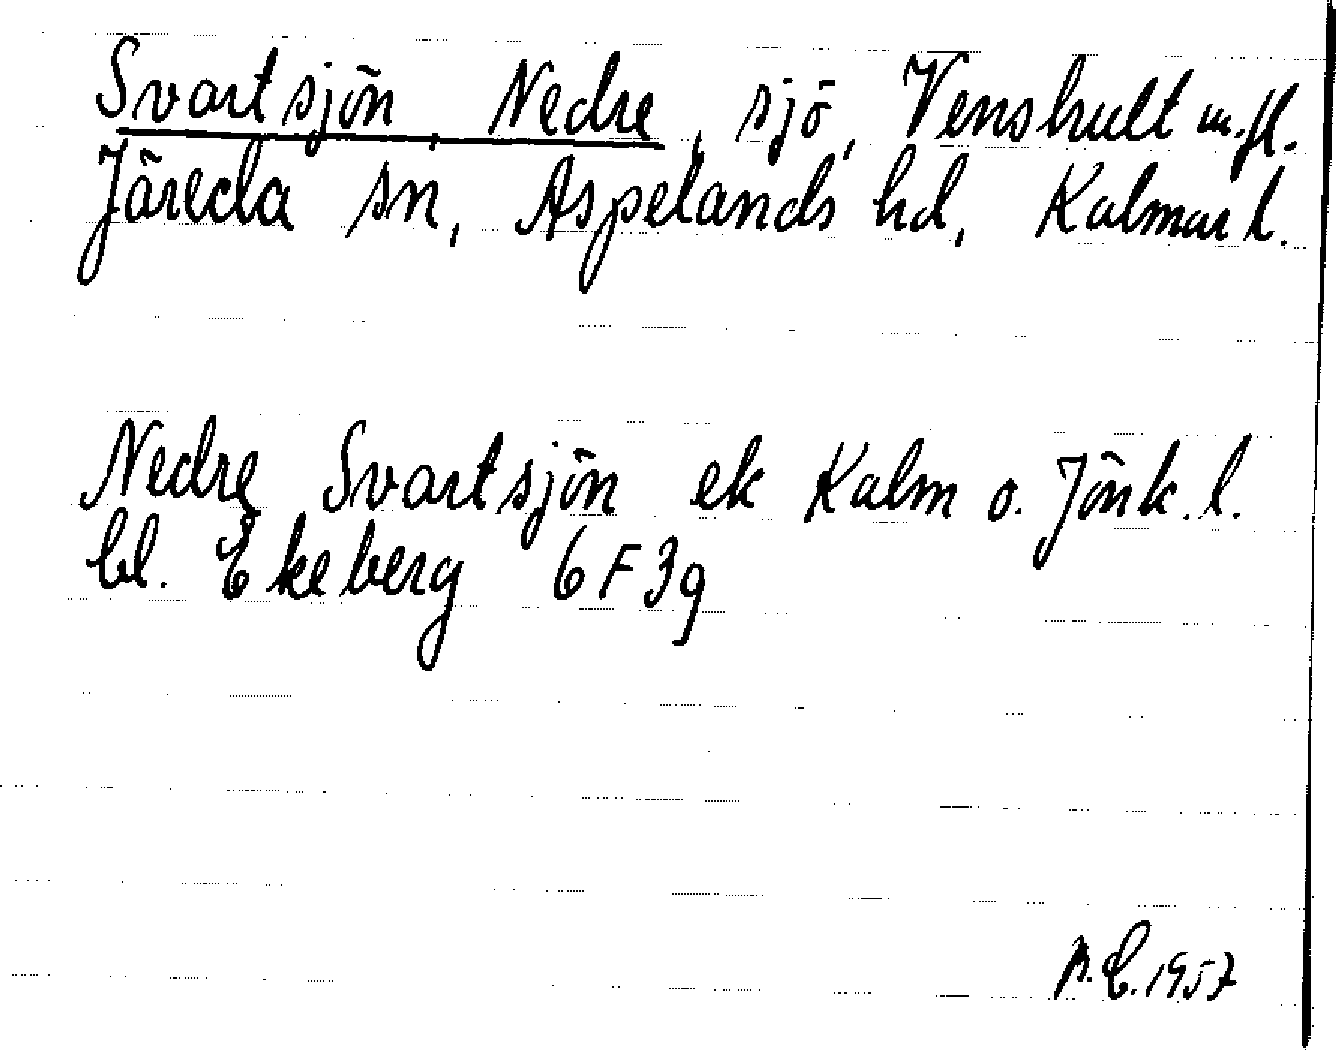 Svartsjön, Nedre, sjö, Venshult m.fl.
Järeda sn, Aspelands hd, Kalmar l.
Nedre Svartsjön ek Kalm o. Jönk. l.
bl. Ekeberg 6F3g
1957